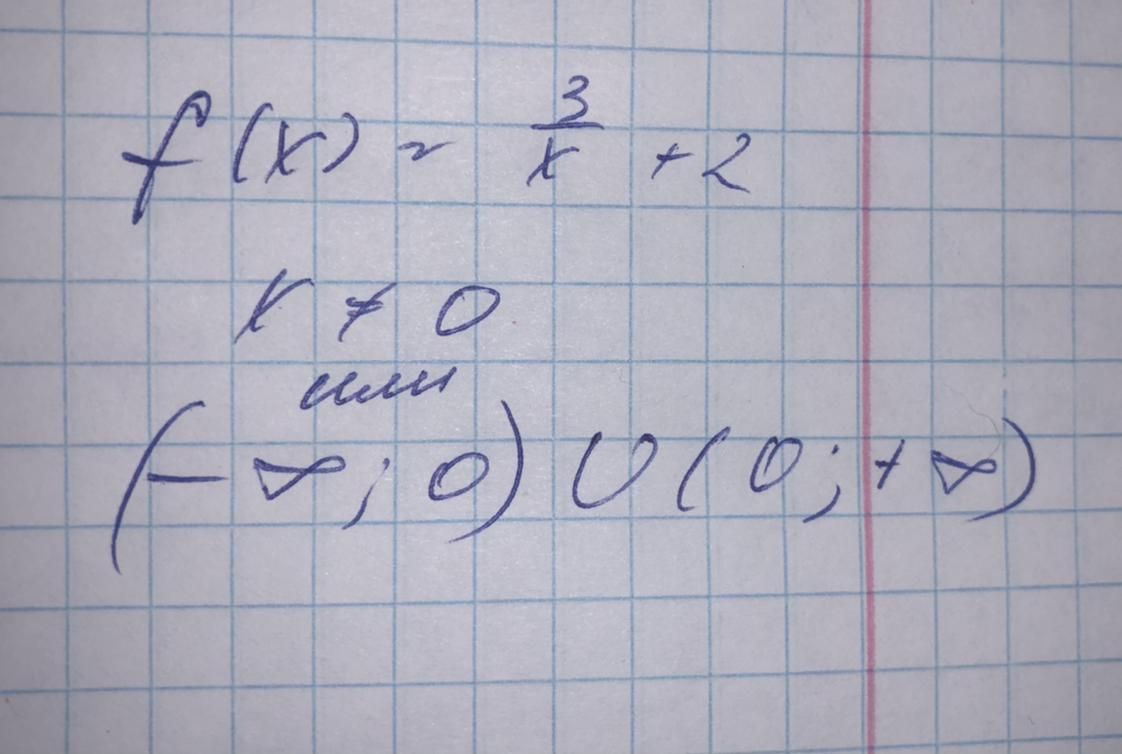 f(x) = 3/x + 2
x ≠ 0
или
(-∞; 0) ∪ (0; +∞)